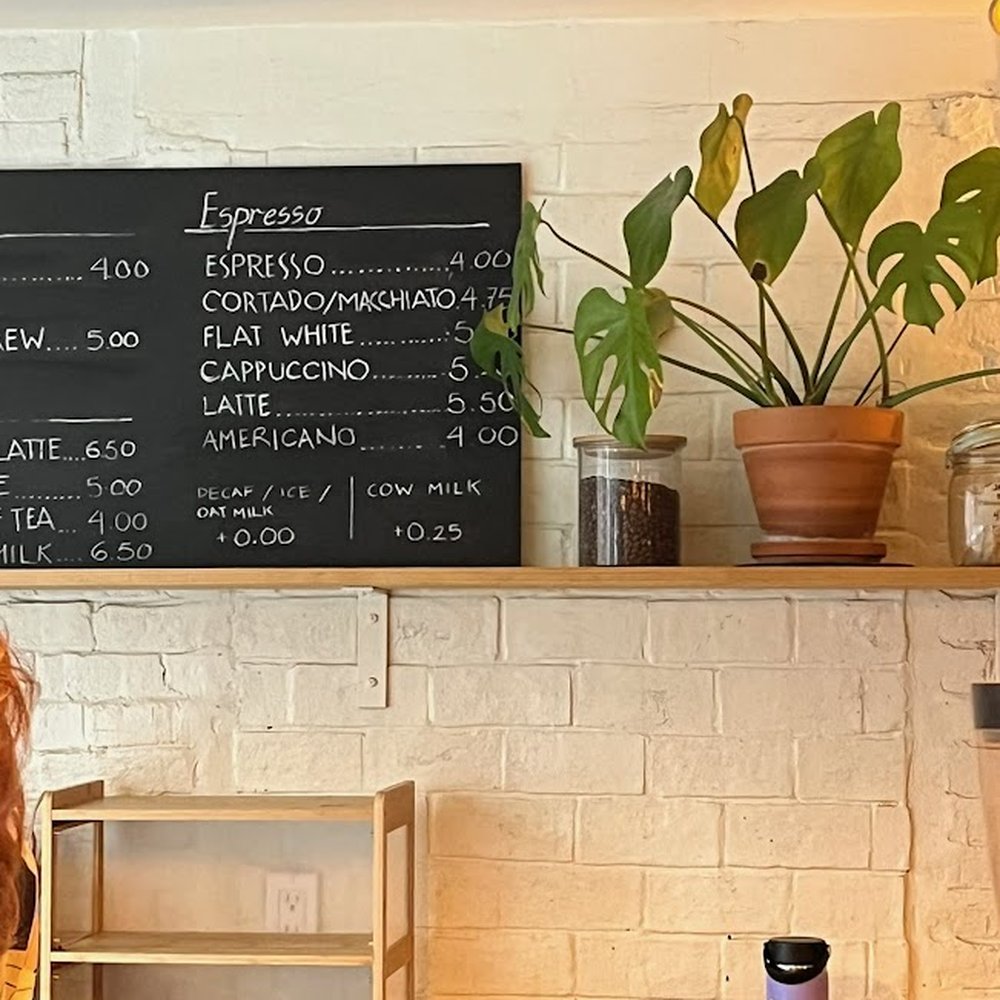 ........ 4.00
EW.... 5.00
LATTE....6.50
.........5.00
TEA... 4.00
MILK.... 6.50
Espresso
ESPRESSO ............. 4.00
CORTADO/MACCHIATO.4.75
FLAT WHITE .......... 5
CAPPUCCINO......... 5.
LATTE................... 5.50
AMERICANO ......... 4 00
DECAF / ICE /
OAT MILK
+0.00
COW MILK
+0.25